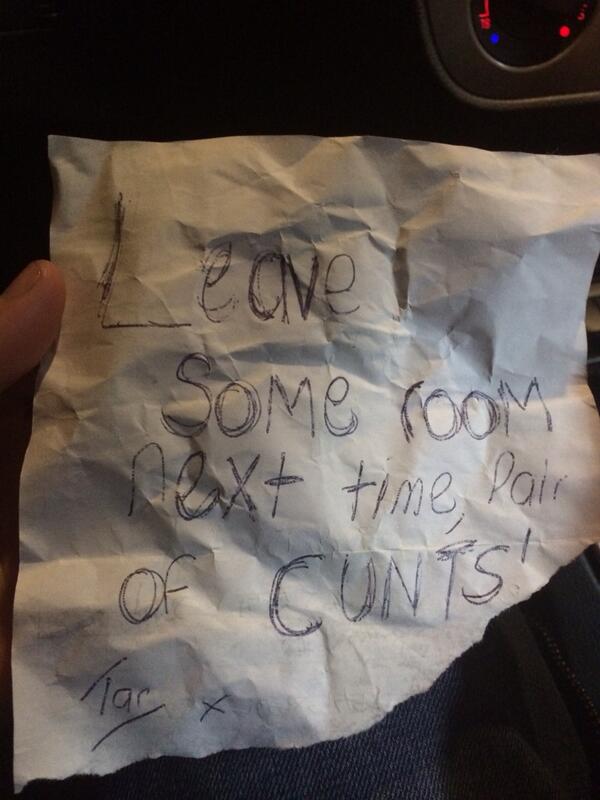 Leave
Some room
next time, Pair
of CUNTS!
Tar x